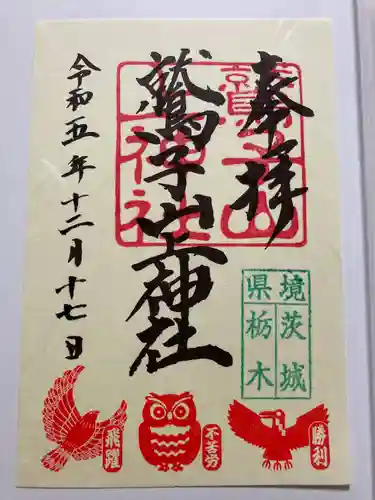 奉拝
鷲子山上神社
令和五年十二月十七日
鷲子山
上神社
境 茨城
県 栃木
飛躍
不苦労
勝利